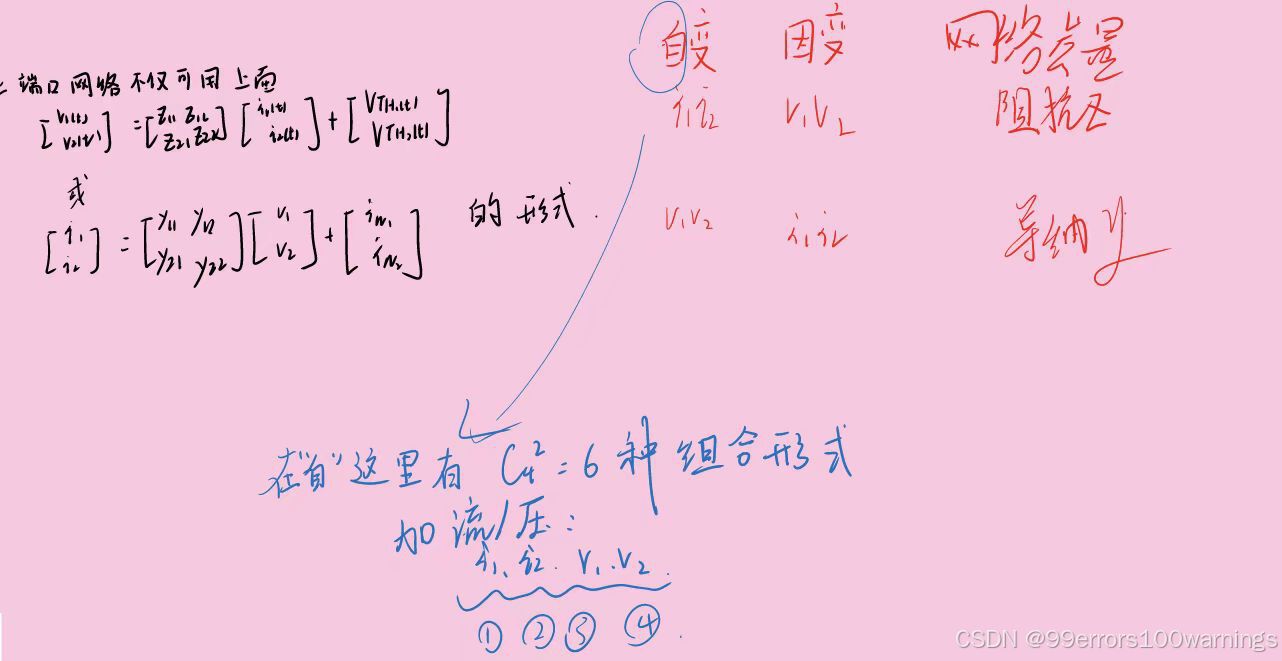 二端口网络不仅可用上面
[v₁(t) v₂(t)] = [Z₁₁ Z₁₂ Z₂₁ Z₂₂] [i₁(t) i₂(t)] + [VTH₁(t) VTH₂(t)]
或
[i₁ i₂] = [y₁₁ y₁₂ y₂₁ y₂₂] [v₁ v₂] + [iN₁ iN₂] 的形式.
自变 因变 网络参量
i₁i₂ v₁v₂ 阻抗Z
v₁v₂ i₁i₂ 导纳y
在"自"这里有 C₄²=6种组合形式
加流/压:
i₁、i₂.v₁.v₂.
① ② ③ ④.
CSDN @99errors100warnings